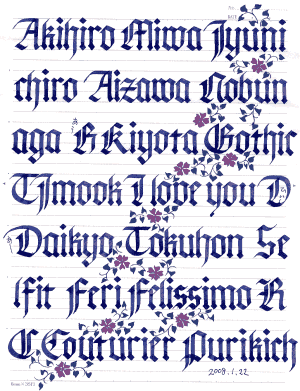 Akihiro Miwa Jyuni
chiro Aizawa Nobun
aga R Kiyota Gothic
TJmook I love you D
Daikyo Tokuhon Se
lfit Feri Felissimo R
C Couturier Purikich
2008.1.22